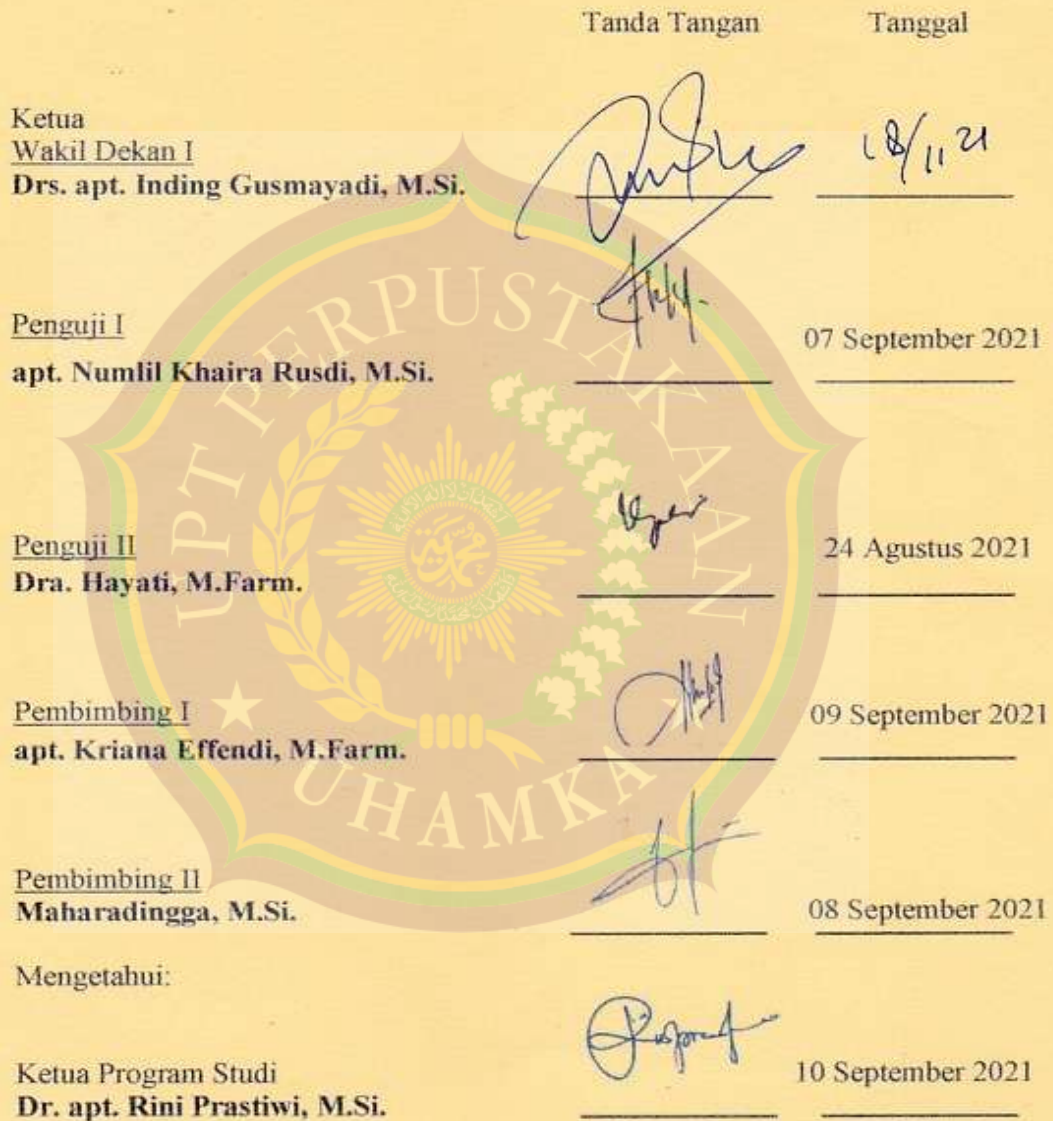 Tanda Tangan Tanggal
Ketua
Wakil Dekan I
Drs. apt. Inding Gusmayadi, M.Si.
18/11 21
Penguji I
apt. Numlil Khaira Rusdi, M.Si.
07 September 2021
Penguji II
Dra. Hayati, M.Farm.
24 Agustus 2021
Pembimbing I
apt. Kriana Effendi, M.Farm.
09 September 2021
Pembimbing II
Maharadingga, M.Si.
08 September 2021
Mengetahui:
Ketua Program Studi
Dr. apt. Rini Prastiwi, M.Si.
10 September 2021
UPT PERPUSTAKAAN
UHAMKA